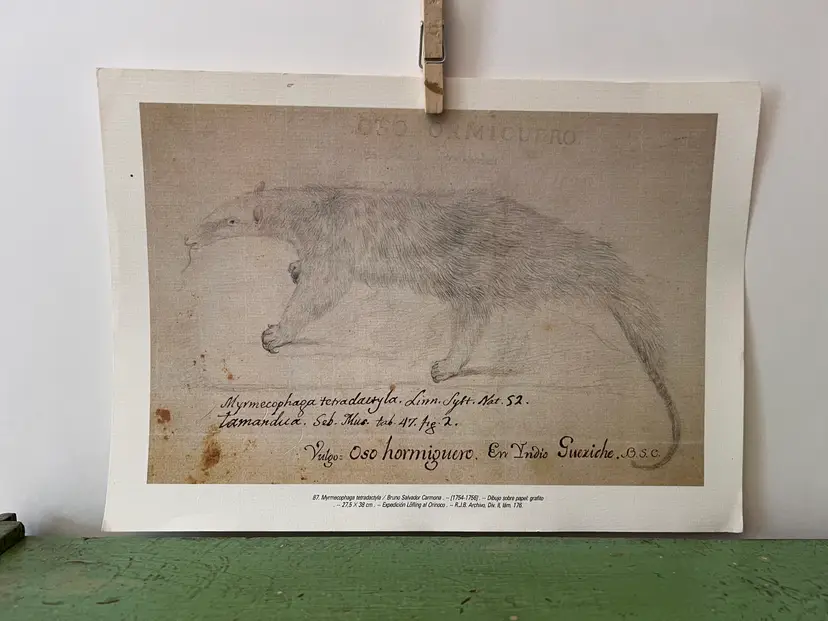 OSO ORMIGUERO
Myrmecophaga tetradactyla. Linn. Syst. Nat. 52.
tamandua. Seb. Mus. tab. 47. fig. 2.
Vulgo: Oso hormiguero. En Indio Gueriche. B.S.C.
87. Myrmecophaga tetradactyla / Bruno Salvador Carmona . – [1754-1756] . – Dibujo sobre papel: grafito
. – 27,5 X 38 cm . – Expedición Löfling al Orinoco . – R.J.B. Archivo, Div. II, lám. 176.